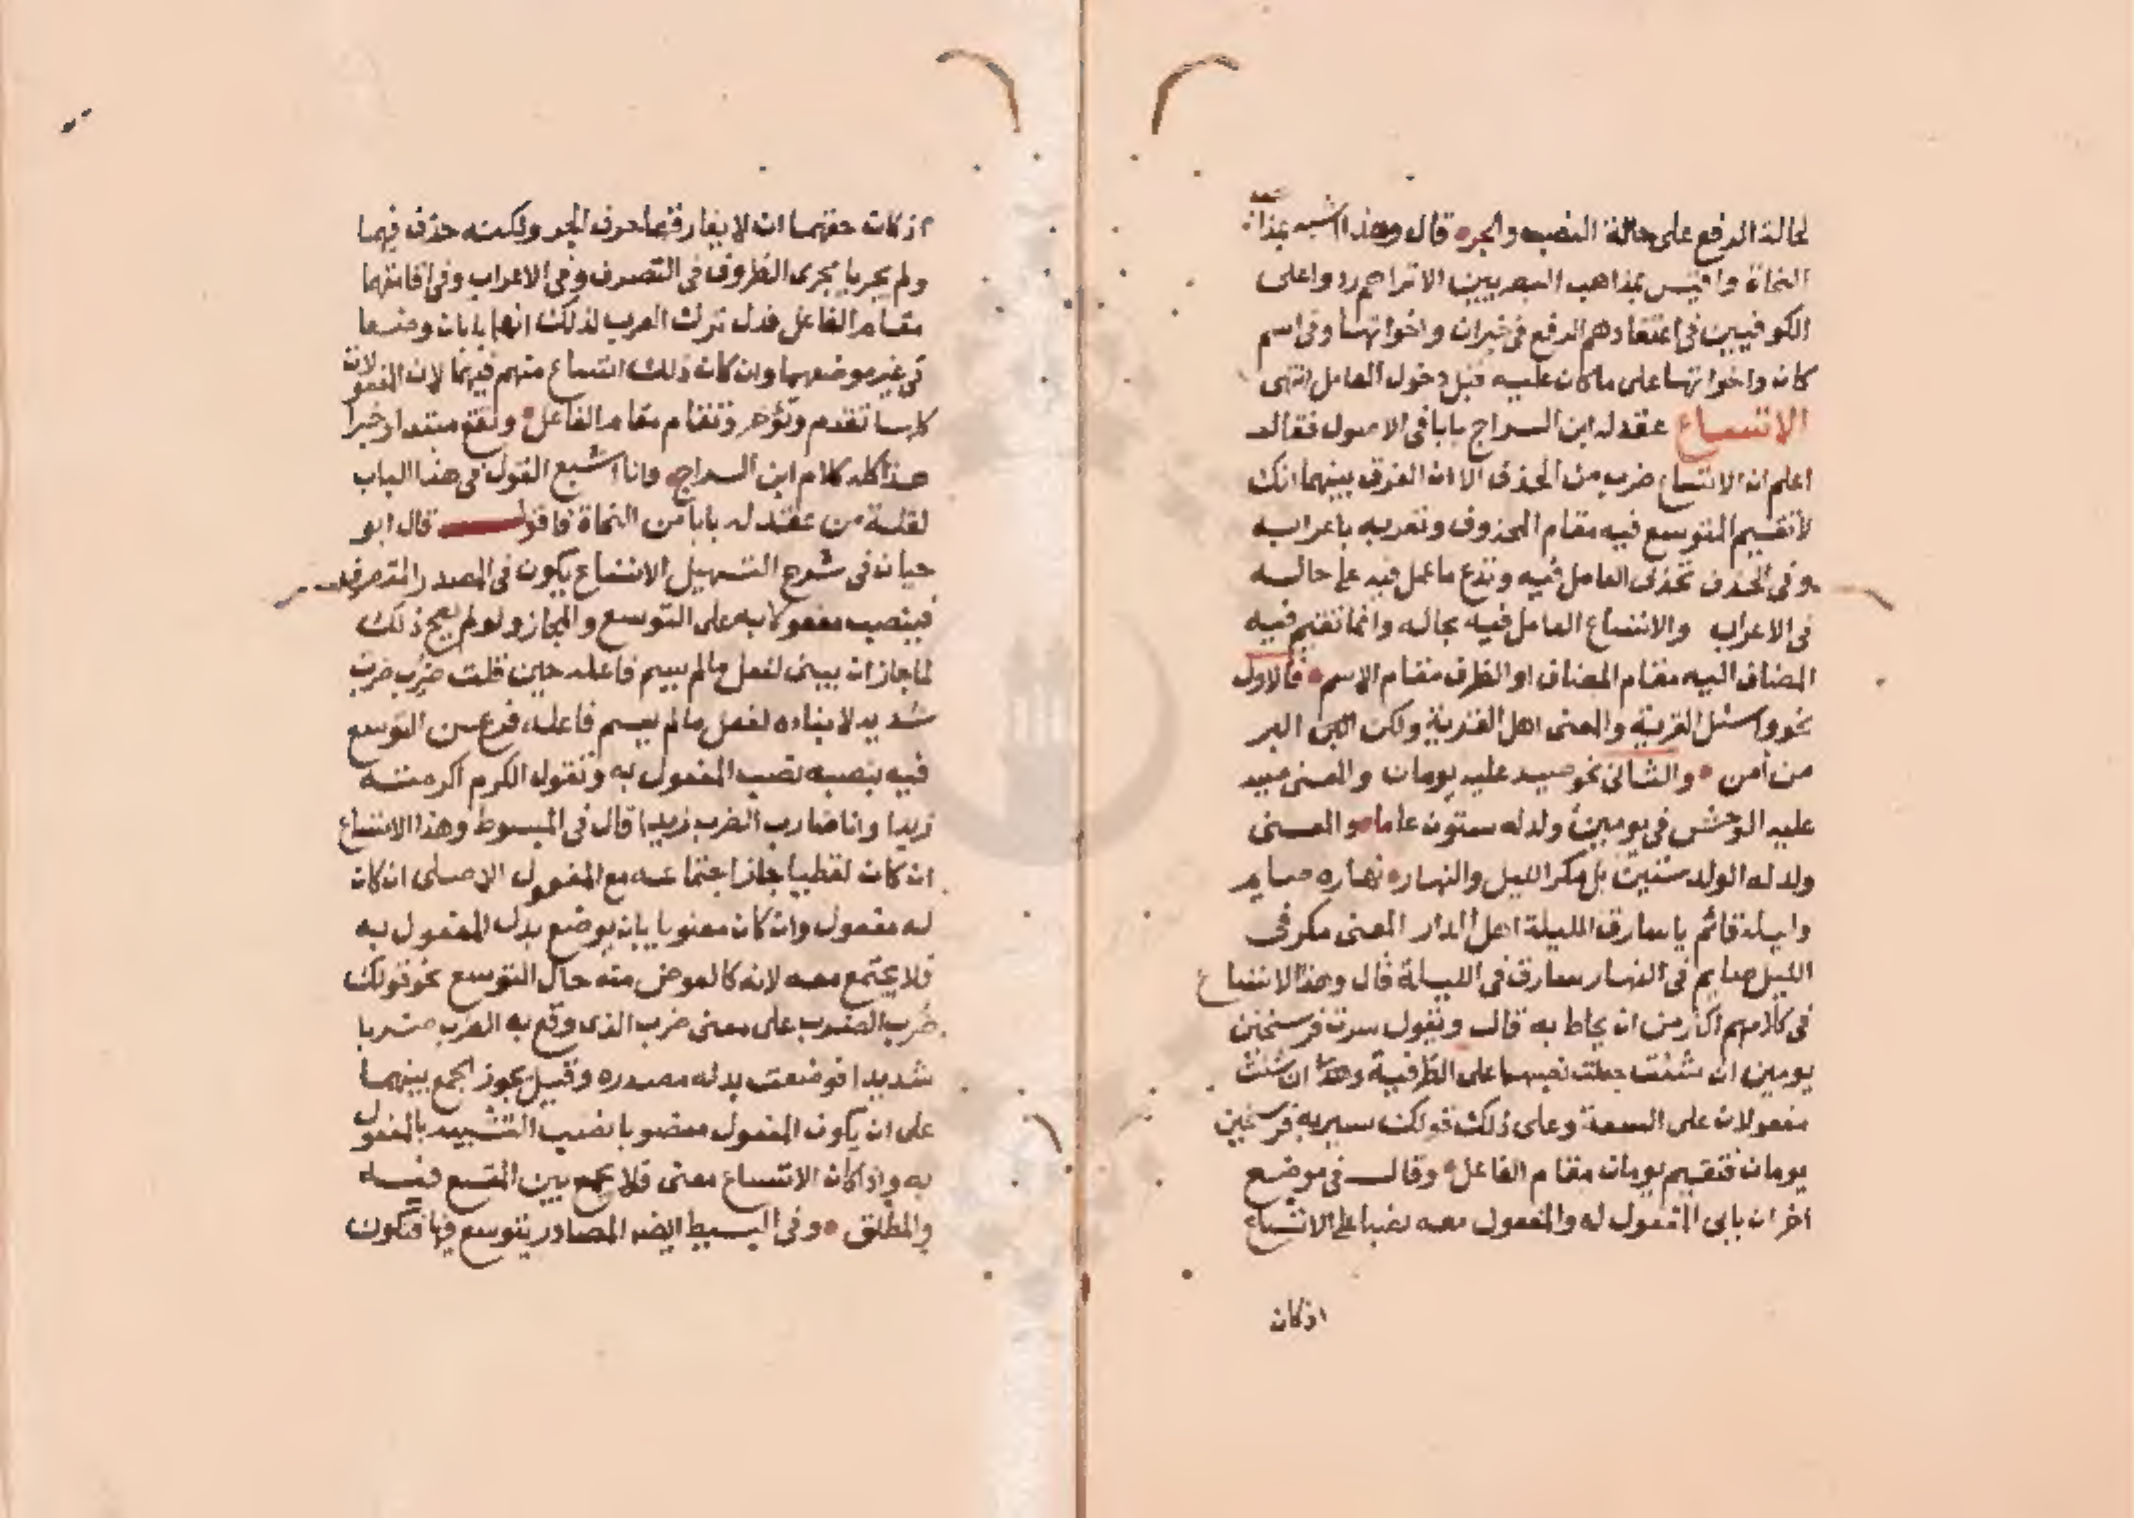 لحالة الرفع على حالة النصب والجر قال وهذا اشبه بمذا
النحاة واقيس بمذاهب البصريين الا تراهم ردوا على
الكوفيين فى اعتقادهم الرفع فى خبر ان واخواتها وفى اسم
كان واخواتها على ما كان عليه قبل دخول العامل انتهى
الاتساع عقد له ابن السراج بابا فى الاصول فقال
اعلم ان الاتساع ضرب من الحذف الا ان الفرق بينهما انك
لا تقيم المتوسع فيه مقام المحذوف وتعربه باعرابه
وفى الحذف تحذف العامل فيه وتدع ما عمل فيه على حاله
فى الاعراب والاتساع العامل فيه بحاله وانما تقيم فيه
المضاف اليه مقام المضاف او الظرف مقام الاسم فالاول
نحو واسئل القرية والمعنى اهل القرية ولكن البر
من آمن والثانى نحو صيد عليه يومان والمعنى صيد
عليه الوحش فى يومين ولد له ستون عاما والمعنى
ولد له الولد ستين بل مكر الليل والنهار نهاره صايم
وليله قائم يا سارق الليلة اهل الدار المعنى مكر فى
الليل صايم فى النهار سارق فى الليلة قال وهذا الاتساع
فى كلامهم اكثر من ان يحاط به قال وتقول سرت فرسخين
يومين ان شئت جعلت نصبهما على الظرفية وان شئت
مفعولان على السعة وعلى ذلك قولك سير به فرسخين
يومان فتقيم يومان مقام الفاعل وقال فى موضع
اخر ان بابى المفعول له والمفعول معه نصبا على الاتساع
اذ كان
اذ كان حقهما ان لا يفارقهما حرف الجر ولكنه حذف فيهما
ولم يجريا مجرى الظروف فى التصرف وفى الاعراب وفى اقامتهما
مقام الفاعل فدل ترك العرب لذلك انهما بابان وضعا
فى غير موضعهما وان كان ذلك اتساع منهم فيهما لان المفعولات
كلها تقدم وتؤخر وتقام مقام الفاعل وتقع مبتدا وخبرا
هذا كله كلام ابن السراج وانا اشبع القول فى هذا الباب
لقلة من عقد له بابا من النحاة فاقول قال ابو
حيان فى شرح التسهيل الاتساع يكون فى المصدر المتصرف
فينصب مفعولا به على التوسع والمجاز ولو لم يصح ذلك
لما جاز ان يبنى لفعل ما لم يسم فاعله حين قلت ضرب ضرب
شديد لان بناءه لفعل ما لم يسم فاعله فرع عن التوسع
فيه بنصبه نصب المفعول به وتقول الكرم اكرمته
زيدا وانا ضارب الضرب زيدا قال فى البسيط وهذا الاتساع
ان كان لفظيا جاز اجتماعه مع المفعول الاصلى ان كان
له مفعول وان كان معنويا بان يوضع بدل المفعول به
فلا يجتمع معه لانه كالعوض منه حال التوسع نحو قولك
ضرب الضرب على معنى ضرب الذى وقع به الضرب ضربا
شديدا فوضعت بدله مصدره وقيل يجوز الجمع بينهما
على ان يكون المفعول منصوبا نصب التشبيه بالمفعول
به واذا كان الاتساع معنى فلا يجمع بين المتسع فيه
والمطلق وفى البسيط ايضا المصادر يتوسع فيها فتكون